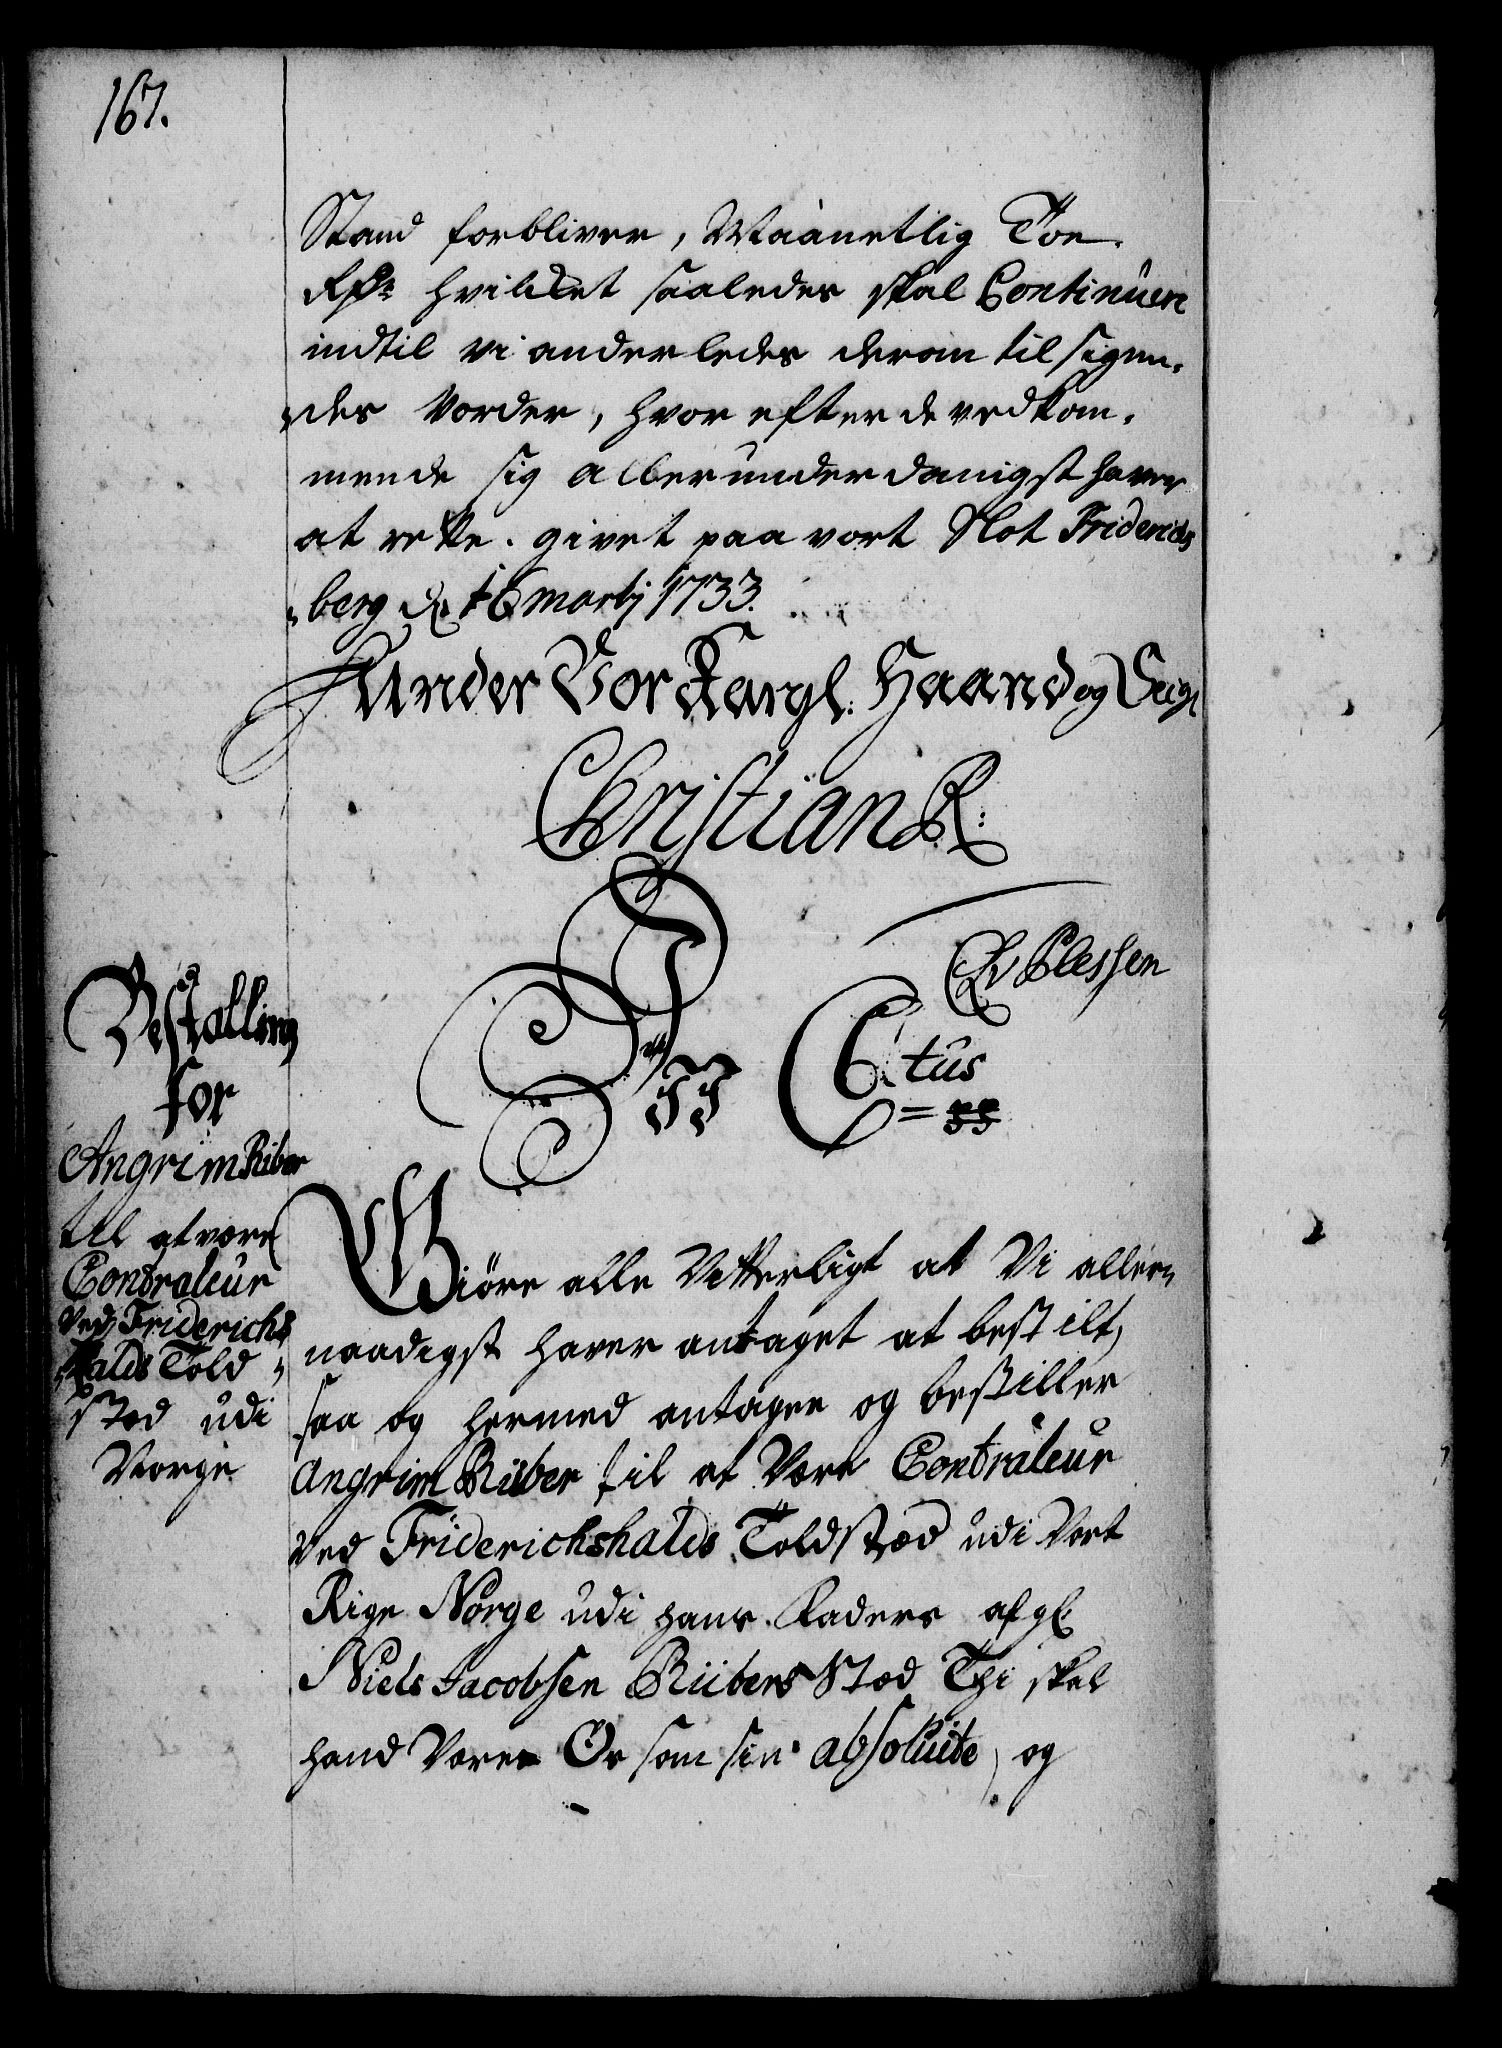 167.
Stand forbliver, Maanetlig Toe
Rdr hvilcket saaledes skal Continuere
indtil vi anderledes derom tilsigen-
des vorder, hvor efter de vedkom-
mende sig allerunderdanigst haver
at rette. givet paa vort Slot Friderichs
berg d. 16 martij 1733.
Under Vor Kongl: Haand og Seigl
Christian R:
CAvPlessen
Bestalling
for
Angrim Riber
til at være
Contraleur
ved Friderichs
halds Told
stæd udi
Norge
Wii C: 6tus
Giöre alle Vitterligt at Vi aller-
naadigst haver antaget at bestilt,
saa og hermed antager og bestiller
Angrim Riiber til at Være Contraleur
Ved Friderichshalds Toldstæd udi Vort
Rige Norge udi hans Faders afgl:
Niels Jacobsen Riibers Stæd Thi skal
hand Være Os som sin absolute og